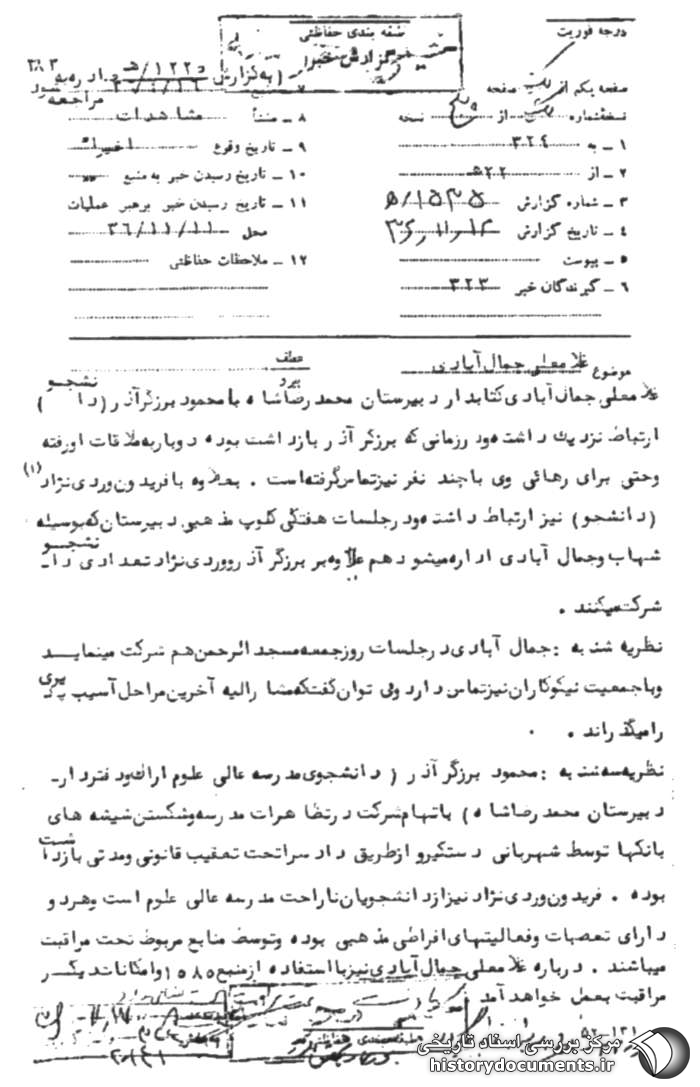 درجه فوریت
طبقه بندی حفاظتی
گزارش خبر
صفحه یکم از صفحه
نسخه شماره از نسخه
۱ ـ به ۳۲٤
۲ ـ از ۵۲۲
۳ ـ شماره گزارش ۱۵۳۵/ه
٤ ـ تاریخ گزارش
۵ ـ پیوست
۶ ـ گیرندگان خبر ۳۲۳
به گزارش ۱۲۲۵/ه
مراجعه شود
۸ ـ منشأ مشاهدات
۹ ـ تاریخ وقوع اخیرا"
۱۰ ـ تاریخ رسیدن خبر به منبع "
۱۱ ـ تاریخ رسیدن خبر برهبر عملیات
محل ۳۶/۱۱/۱۱
۱۲ ـ ملاحظات حفاظتی
موضوع غلامعلی جمال آبادی
عطف
پیرو
غلامعلی جمال آبادی کتابدار دبیرستان محمد رضا شاه با محمود برزگر آذر (دانشجو)
ارتباط نزدیك داشته و در زمانی که برزگر آذر بازداشت بوده دوبار به ملاقات او رفته
وحتی برای رهائی وی با چند نفر نیز تماس گرفته است . بعلاوه با فریدون وردی نژاد (۱)
(دانشجو) نیز ارتباط داشته و در جلسات هفتگی کلوپ مذهبی دبیرستان که بوسیله
شهاب و جمال آبادی اداره میشود هم علاوه بر برزگر آذر و وردی نژاد تعدادی دانشجو
شرکت میکنند .
نظریه شنبه : جمال آبادی در جلسات روز جمعه مسجد الرحمن هم شرکت مینماید
و با جمعیت نیکوکاران نیز تماس دارد و می توان گفت که مشارالیه آخرین مراحل آسیب پذیری
را میگذراند .
نظریه سه شنبه : محمود برزگر آذر (دانشجوی مدرسه عالی علوم اراك و دفتردار ـ
دبیرستان محمد رضا شاه) باتهام شرکت در تظاهرات مدرسه و شکستن شیشه های
بانکها توسط شهربانی دستگیر و از طریق دادسرا تحت تعقیب قانونی و مدتی بازداشت
بوده . فریدون وردی نژاد نیز از دانشجویان ناراحت مدرسه عالی علوم است و هردو
دارای تعصبات و فعالیتهای افراطی مذهبی بوده و توسط منابع مربوط تحت مراقبت
میباشند . درباره غلامعلی جمال آبادی نیز با استفاده از منبع ۱۵۸۰ و امکانات دیگر
مراقبت بعمل خواهد آمد
طبقه بندی حفاظتی
مرکز بررسی اسناد تاریخی
historydocuments.ir